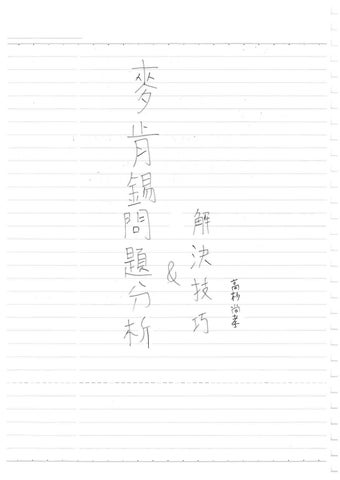 麥肯錫問題分析
&
解決技巧
高杉尚孝